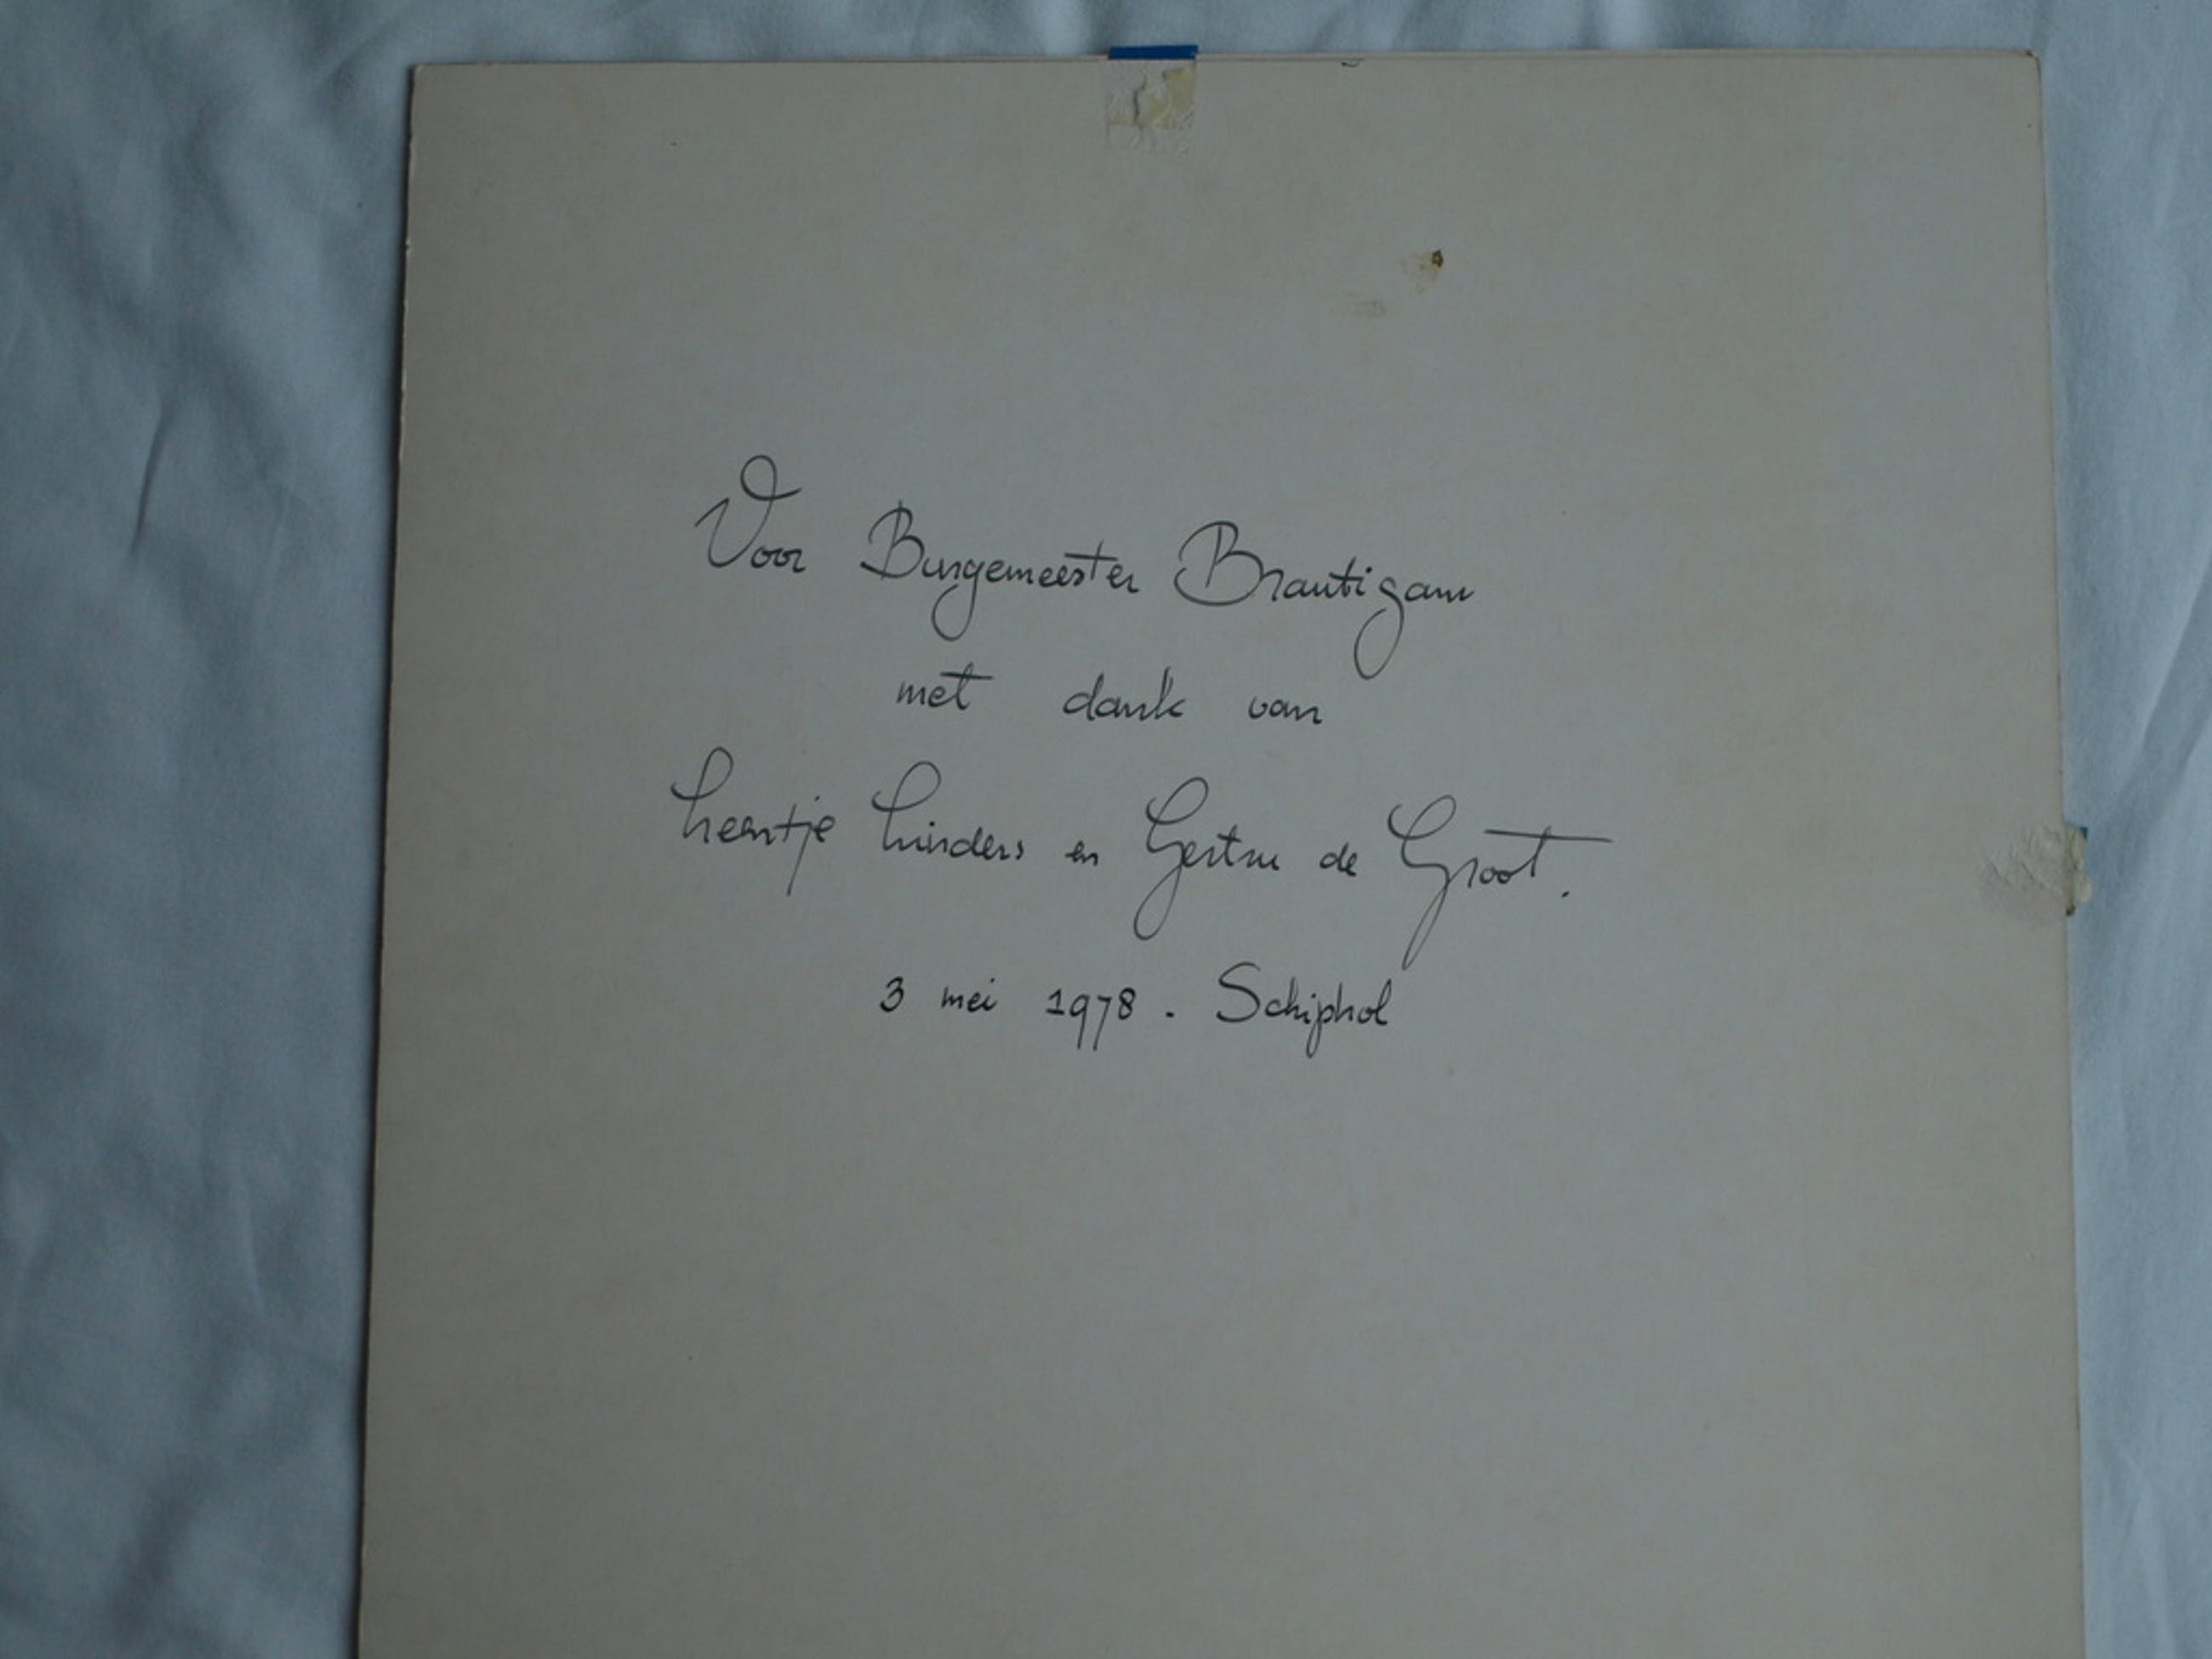 Voor Burgemeester Brautigam
met dank van
Leentje Linders en Gertru de Groot.
3 mei 1978. Schiphol